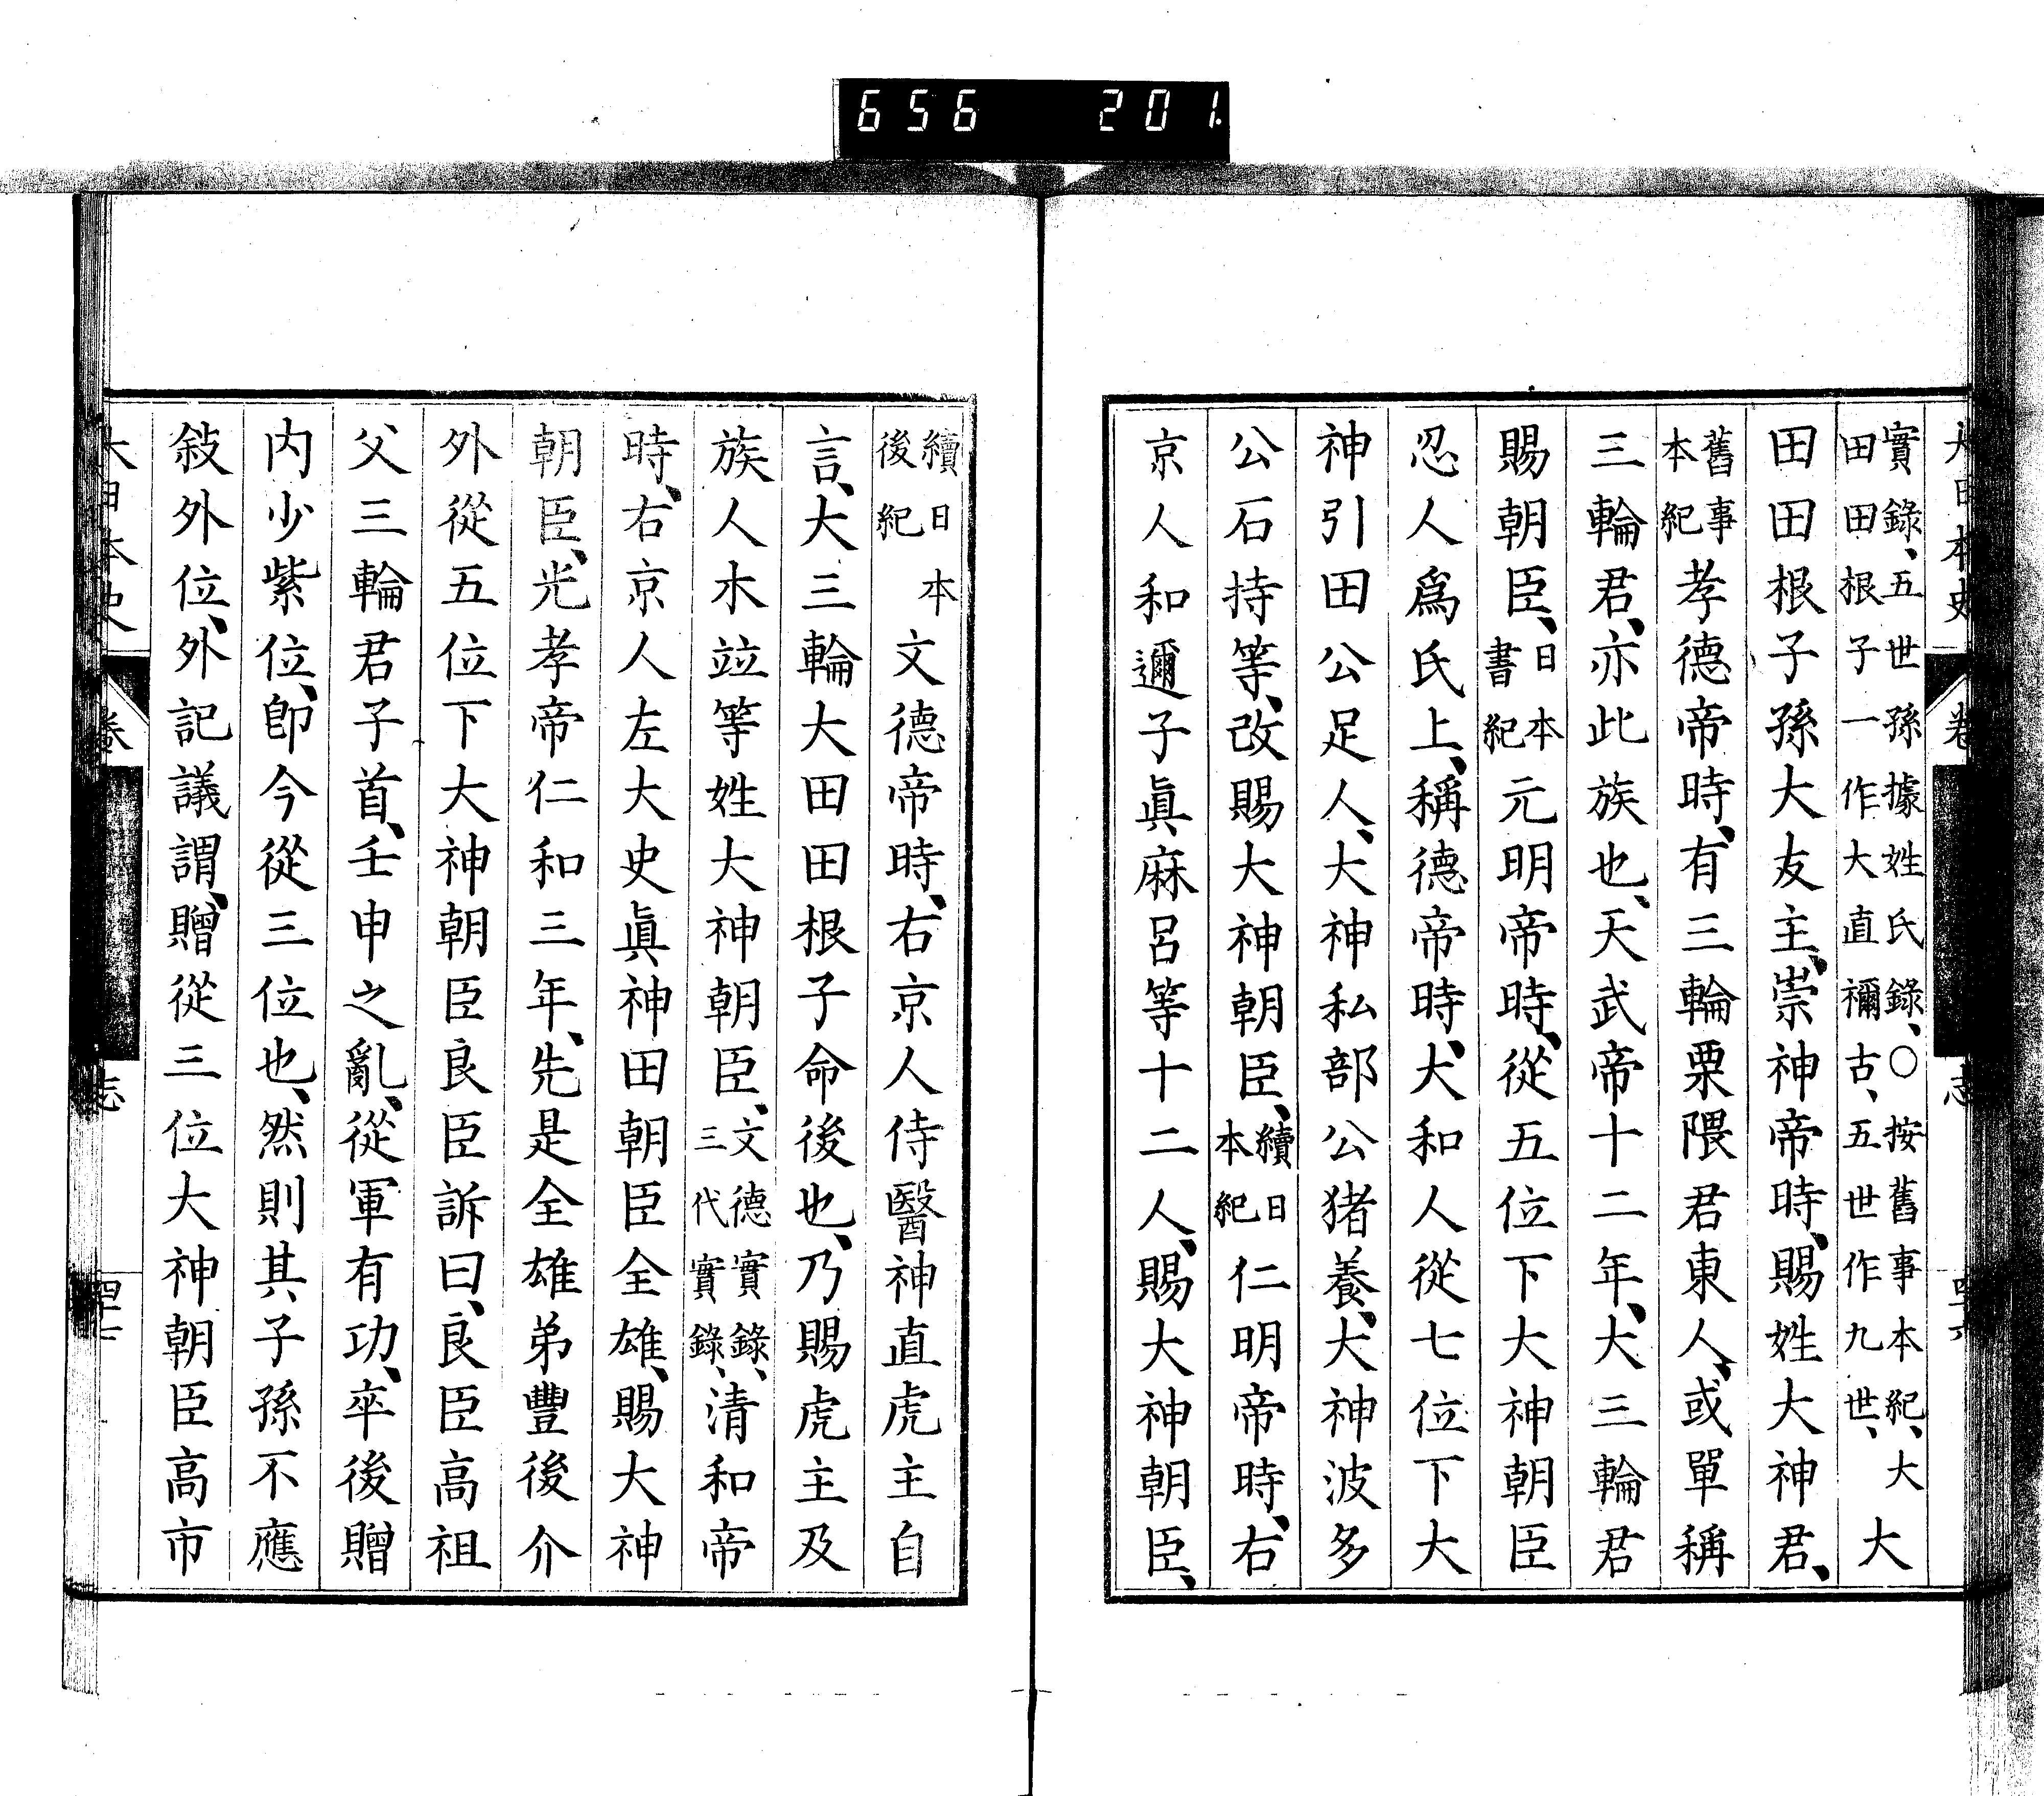 656 201.
大日本史 卷 志 四十六
實錄、五世孫據姓氏錄、○按舊事本紀、大
田田根子一作大直禰古、五世作九世、大
田田根子孫大友主、崇神帝時、賜姓大神君、
舊事本紀孝德帝時、有三輪栗隈君東人、或單稱
三輪君、亦此族也、天武帝十二年、大三輪君
賜朝臣、日本書紀元明帝時、從五位下大神朝臣
忍人爲氏上、稱德帝時、大和人從七位下大
神引田公足人、大神私部公猪養、大神波多
公石持等、改賜大神朝臣、續日本紀仁明帝時、右
京人和邇子眞麻呂等十二人、賜大神朝臣、
續日本後紀文德帝時、右京人侍醫神直虎主自
言、大三輪大田田根子命後也、乃賜虎主及
族人木竝等姓大神朝臣、文德實錄、三代實錄、清和帝
時、右京人左大史眞神田朝臣全雄、賜大神
朝臣、光孝帝仁和三年、先是全雄弟豐後介
外從五位下大神朝臣良臣訴曰、良臣高祖
父三輪君子首、壬申之亂、從軍有功、卒後贈
内少紫位、卽今從三位也、然則其子孫不應
敍外位、外記議謂、贈從三位大神朝臣高市
大日本史 卷 志